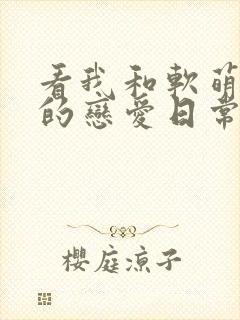 看我和軟萌
的戀愛日常
櫻庭涼子